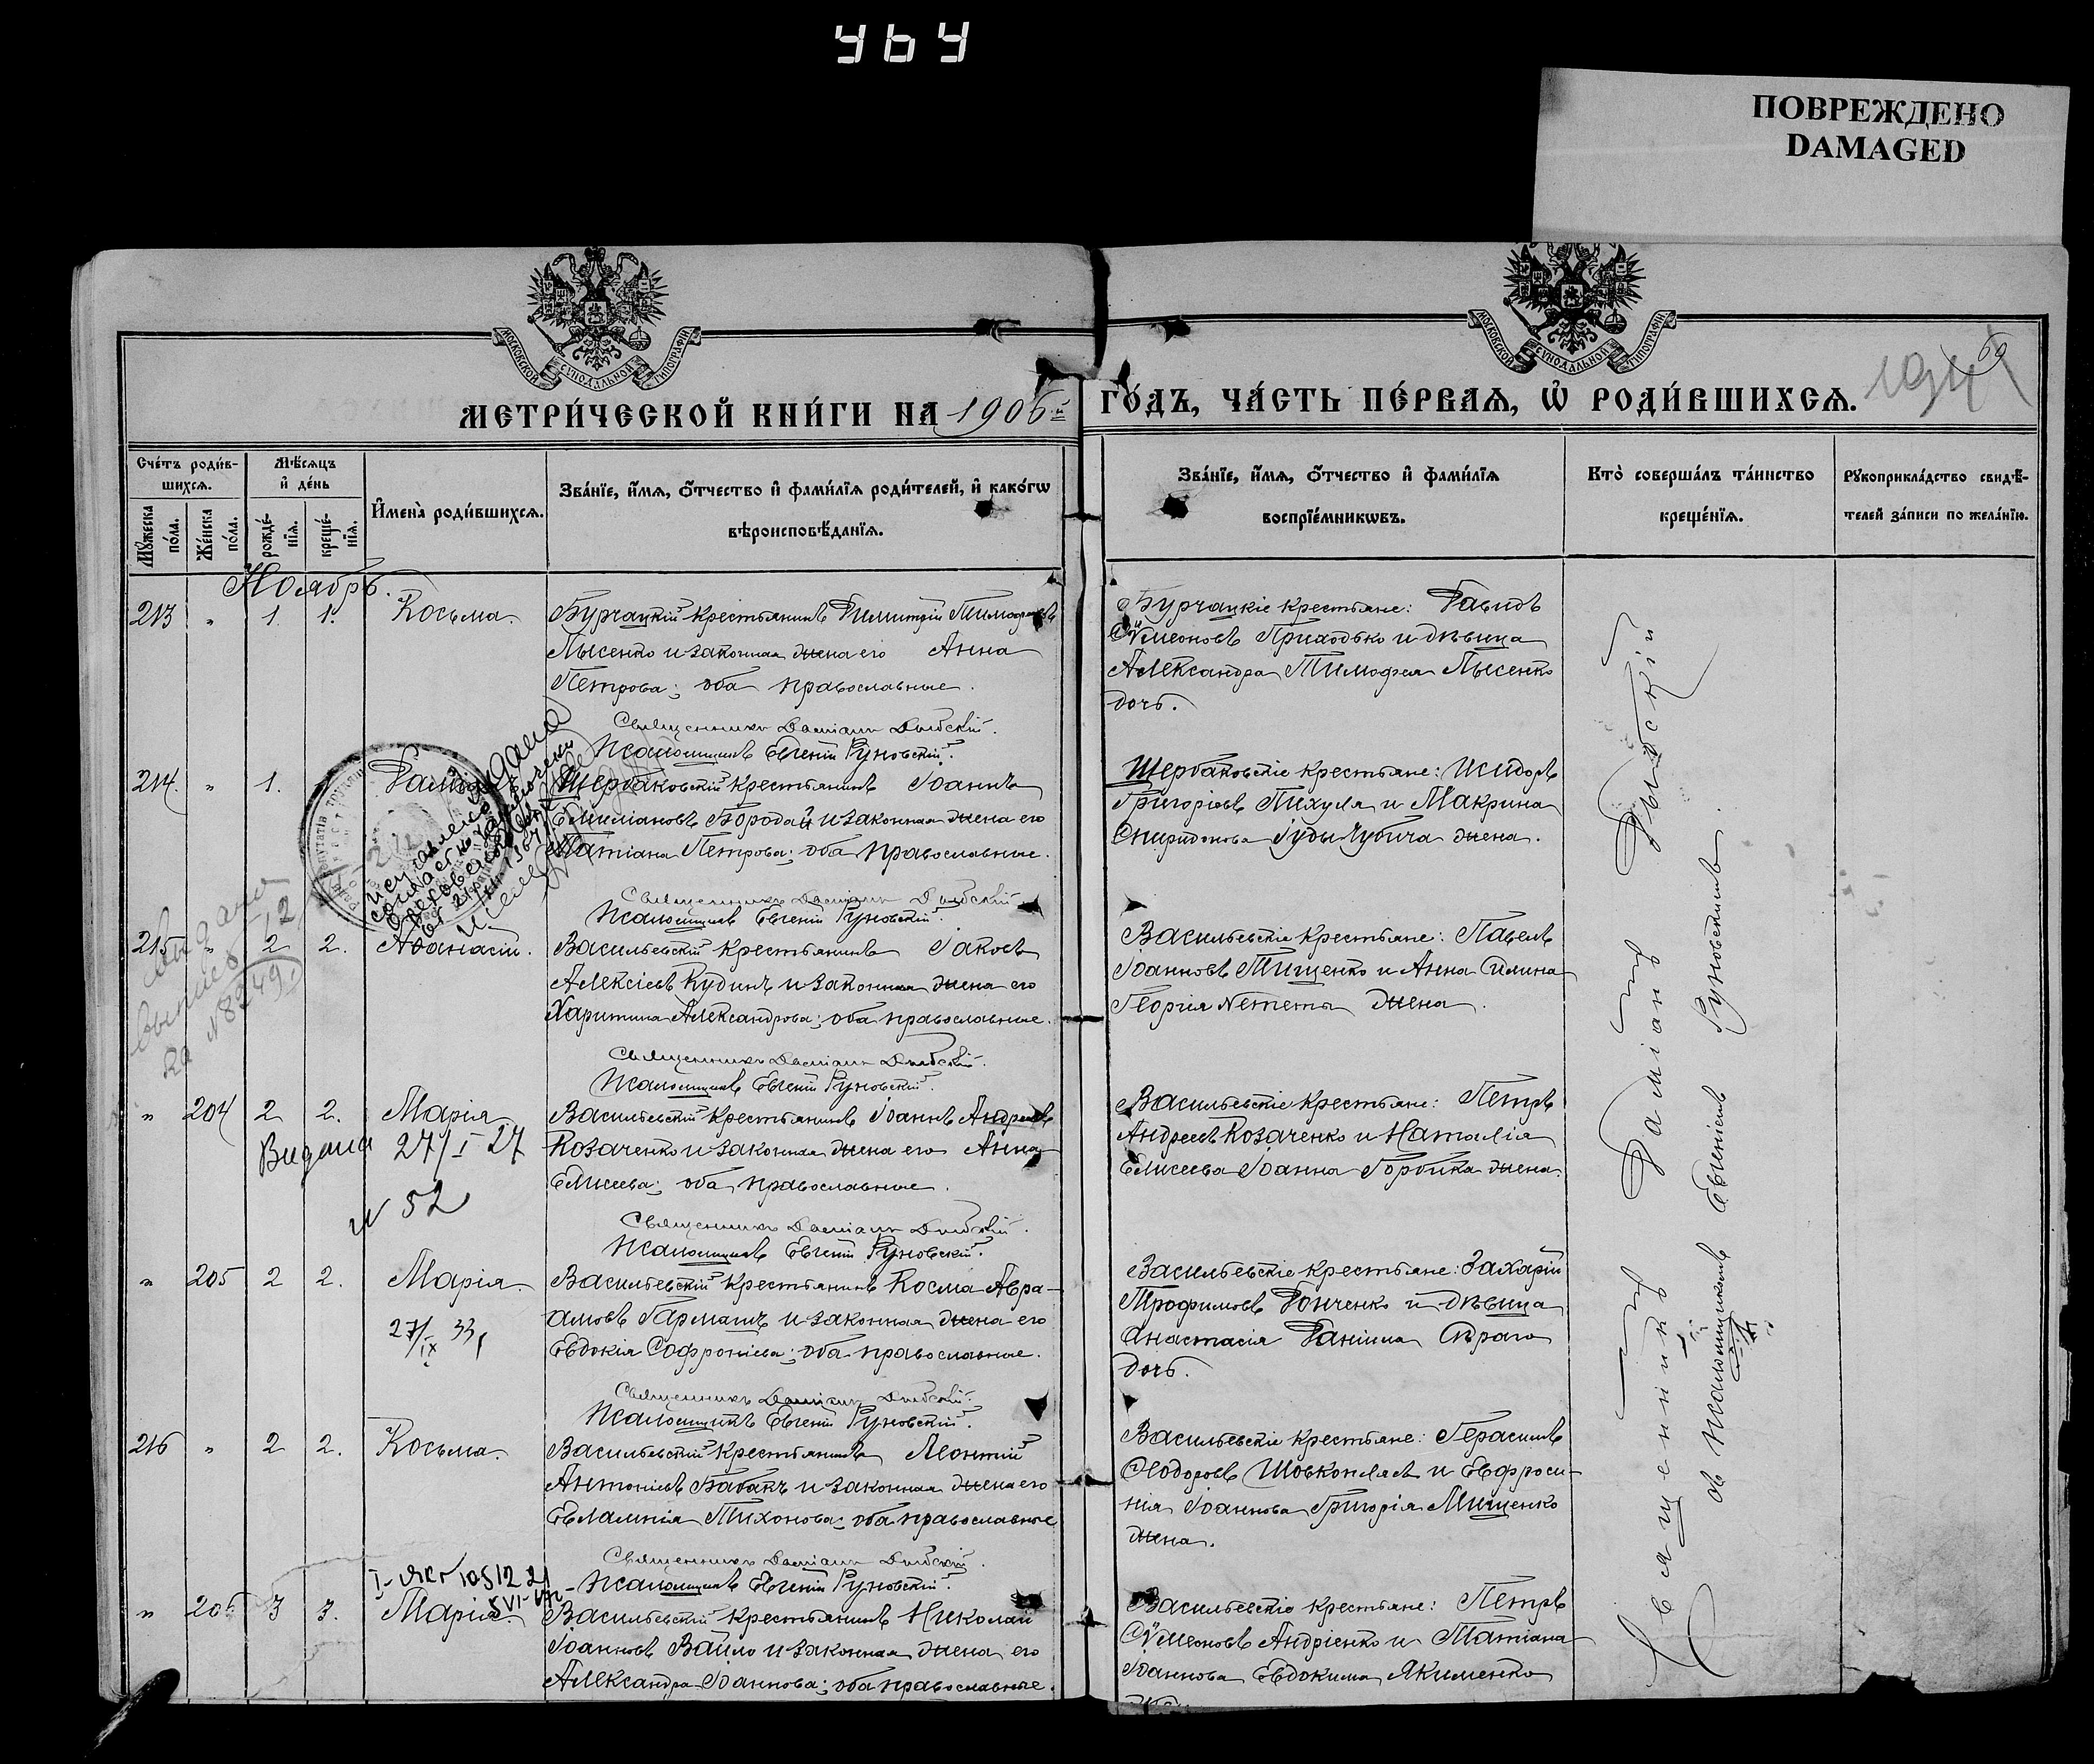 464
ПОВРЕЖДЕНО
DAMAGED
МОСКОВСКОЙ СѴНОДАЛЬНОЙ ТИПОГРАФІИ
МОСКОВСКОЙ СѴНОДАЛЬНОЙ ТИПОГРАФІИ
МЕТРИ́ЧЕСКОЙ КНИ́ГИ НА 1906й ГО́ДЪ, ЧА́СТЬ ПЕ́РВАѦ, Ѡ҆ РОДИ́ВШИХСѦ.
194
69
Сче́тъ роди́в-
шихсѧ.
Мѣ́сѧцъ
и҆ де́нь
Му́жеска по́ла.
Же́нска по́ла.
рожде́-нїѧ.
креще́-нїѧ.
И҆мена̀ роди́вшихсѧ.
Зва́нїе, и҆́мѧ, ѻ҆́тчество и҆ фами́лїѧ роди́телей, и҆ како́гѡ
вѣроисповѣ́данїѧ.
Зва́нїе, и҆́мѧ, ѻ҆́тчество и҆ фами́лїѧ
воспрїе́мникѡвъ.
Кто̀ соверша́лъ та́инство
креще́нїѧ.
Рꙋкоприкла́дство свидѣ́-
телей за́писи по жела́нїю.
Ноябрь.
213 " 1 1. Косьма.
Бурчацкій крестьянинъ Димитрій Тимофеевъ
Лысенко и законная жена его Анна
Петрова; оба православные.
Священникъ Даміанъ Дыбскій.
Псаломщикъ Евгеній Руновскій.
Бурчацкіе крестьяне: Давидъ
Сѵмеоновъ Приходько и дѣвица
Александра Тимофея Лысенко
дочь.
214. " 1. Даміанъ
Щербаковскій крестьянинъ Іоаннъ
Емиліановъ Бородай и законная жена его
Татіана Петрова; оба православные.
Священникъ Даміанъ Дыбскій
Псаломщикъ Евгеній Руновскій.
Щербаковскіе крестьяне: Исидоръ
Григоріевъ Пихуля и Макрина
Спиридонова Іуды Чубича жена.
Выдана
выпись
за №8249.
215 " 2 2. Аѳанасій.
Васильевскій крестьянинъ Іаковъ
Алексіевъ Кудинъ и законная жена его
Харитина Александрова; оба православные.
Священникъ Даміанъ Дыбскій.
Псаломщикъ Евгеній Руновскій.
Васильевскіе крестьяне: Павелъ
Іоанновъ Тищенко и Анна Илина
Георгія Нетета жена.
" 204 2 2. Марія
Видана 27/I 27
N 52
Васильевскій крестьянинъ Іоаннъ Андреевъ
Козаченко и законная жена его Анна
Елисеева; оба православные.
Священникъ Даміанъ Дыбскій.
Псаломщикъ Евгеній Руновскій.
Васильевскіе крестьяне: Петръ
Андреевъ Козаченко и Наталія
Елисеева Іоанна Горбика жена.
" 205 2 2. Марія.
27/IX 33
Васильевскій крестьянинъ Косма Авра-
амовъ Гармашъ и законная жена его
Евдокія Софроніева; оба православные.
Священникъ Даміанъ Дыбскій.
Псаломщикъ Евгеній Руновскій.
Васильевскіе крестьяне: Захарій
Трофимовъ Донченко и дѣвица
Анастасія Даніила Страго
дочь.
216 " 2 2. Косьма.
Васильевскій крестьянинъ Леонтій
Антоніевъ Бабакъ и законная жена его
Евлампія Тихонова; оба православные
Священникъ Даміанъ Дыбскій.
Псаломщикъ Евгеній Руновскій.
Васильевскіе крестьяне: Герасимъ
Ѳеодоровъ Шовкопляс и Евфроси-
нія Іоаннова Григорія Мищенко
жена.
" 206 3 3. Марія.
Васильевскій крестьянинъ Николай
Іоанновъ Вайло и законная жена его
Александра Іоаннова; оба православные.
Васильевскіе крестьяне: Петръ
Сѵмеоновъ Андріенко и Татіана
Іоаннова Евдокима Якименко
Священникъ Даміанъ Дыбскій
съ псаломщикомъ Евгеніемъ Руновскимъ.